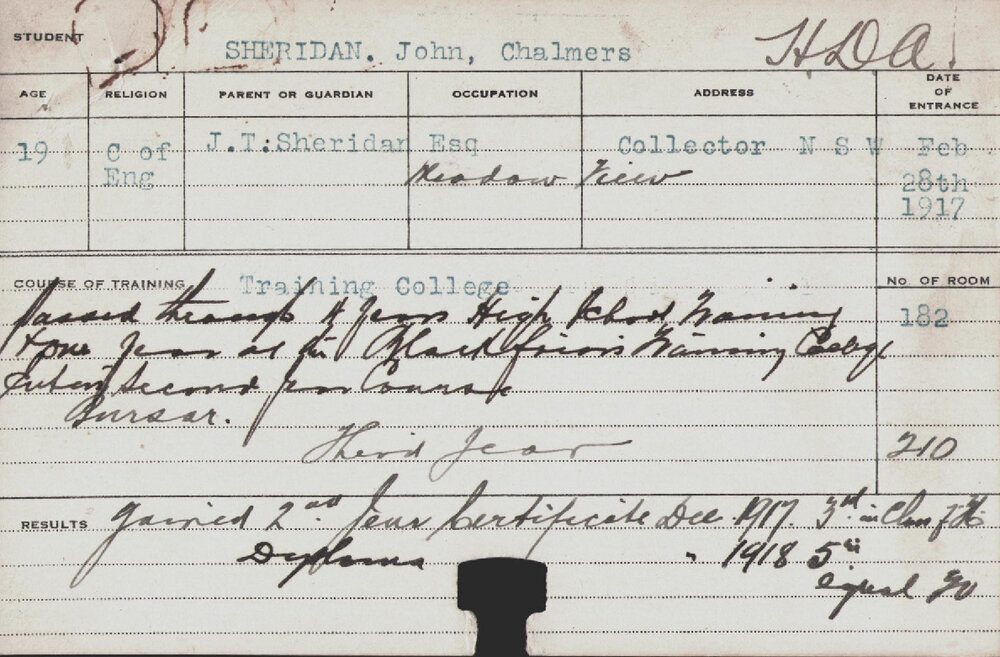 STUDENT SHERIDAN. John, Chalmers H.D.A.
AGE RELIGION PARENT OR GUARDIAN OCCUPATION ADDRESS DATE OF ENTRANCE
19 C of Eng J.T:Sheridan Esq Collector N S W Feb 28th 1917
Meadow View
COURSE OF TRAINING Training College No. OF ROOM
passed through 4 years High School Training 182
+ one year at the Blackfriars Training College
Enters Second year Course
Bursar.
Third Year 210
RESULTS gained 2nd Year Certificate Dec 1917. 3rd in Class of
Diploma " 1918 5th
equal